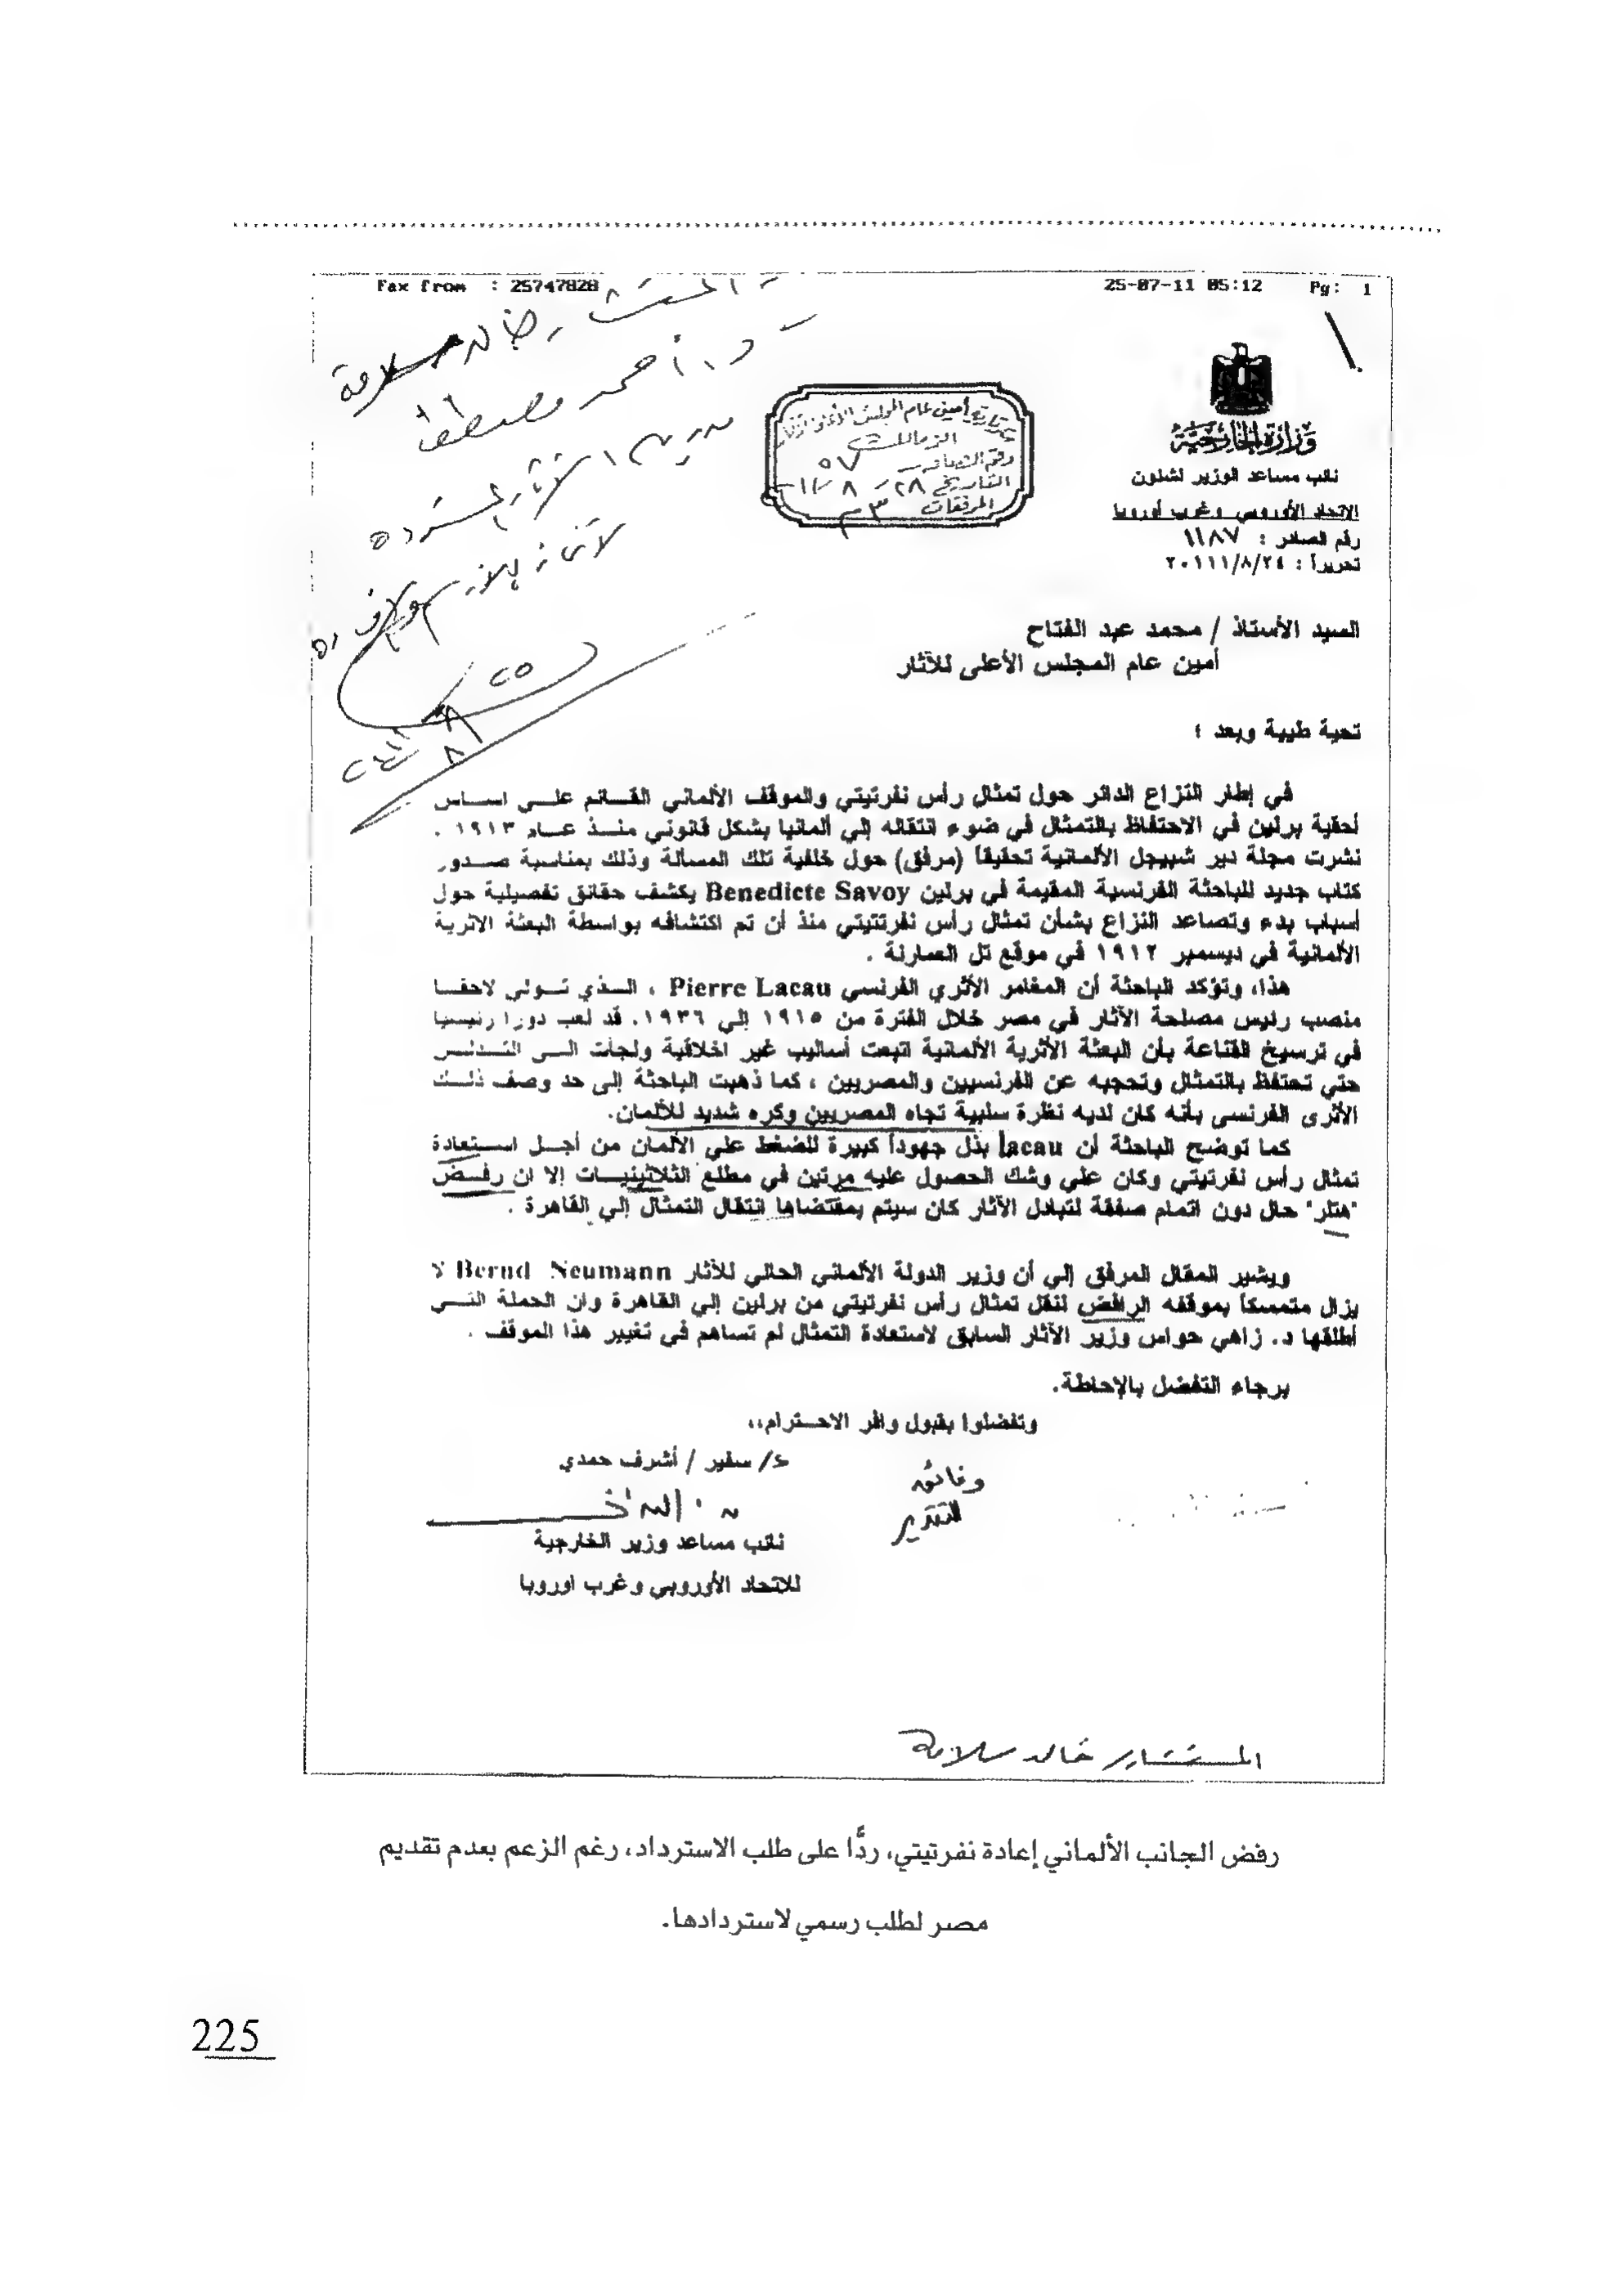 Fax from : 25747828 25-07-11 05:12 Pg: 1
د. أحمد مصطفى
وزارة الخارجية
نائب مساعد الوزير لشئون
الاتحاد الأوروبي وغرب أوروبا
رقم الصادر : ١١٨٧
تحريراً : ٢٠١١١/٨/٢٤
سكرتارية أمين عام المجلس الأعلى للآثار
الزمالك
رقم الصادر ٥٧
التاريخ ٢٨ / ٨ / ١١
المرفقات ٣ م
السيد الأستاذ / محمد عبد الفتاح
أمين عام المجلس الأعلى للآثار
تحية طيبة وبعد ؛
في إطار النزاع الدائر حول تمثال رأس نفرتيتي والموقف الألماني القائم علي اساس
أحقية برلين في الاحتفاظ بالتمثال في ضوء انتقاله إلي ألمانيا بشكل قانوني منذ عام ١٩١٣ .
نشرت مجلة دير شبيجل الألمانية تحقيقا (مرفق) حول خلفية تلك المسألة وذلك بمناسبة صدور
كتاب جديد للباحثة الفرنسية المقيمة في برلين Benedicte Savoy يكشف حقائق تفصيلية حول
أسباب بدء وتصاعد النزاع بشأن تمثال رأس نفرتتيتي منذ أن تم اكتشافه بواسطة البعثة الاثرية
الألمانية في ديسمبر ١٩١٢ في موقع تل العمارنة .
هذا، وتؤكد الباحثة أن المغامر الأثري الفرنسي Pierre Lacau ، الذي تولي لاحقا
منصب رئيس مصلحة الآثار في مصر خلال الفترة من ١٩١٥ إلي ١٩٣٦، قد لعب دورا رئيسيا
في ترسيخ القناعة بأن البعثة الأثرية الألمانية اتبعت أساليب غير اخلاقية ولجأت الى التدلس
حتي تحتفظ بالتمثال وتحجبه عن الفرنسيين والمصريين ، كما ذهبت الباحثة إلى حد وصف ذلك
الأثرى الفرنسى بأنه كان لديه نظرة سلبية تجاه المصريين وكره شديد للألمان.
كما توضح الباحثة أن lacau بذل جهوداً كبيرة للضغط علي الألمان من أجل استعادة
تمثال رأس نفرتيتي وكان علي وشك الحصول عليه مرتين في مطلع الثلاثينيات إلا ان رفض
"هتلر" حال دون اتمام صفقة لتبادل الآثار كان سيتم بمقتضاها انتقال التمثال إلي القاهرة .
ويشير المقال المرفق إلي أن وزير الدولة الألماني الحالي للآثار Bernd Neumann لا
يزال متمسكاً بموقفه الرافض لنقل تمثال رأس نفرتيتي من برلين إلي القاهرة وان الحملة التي
أطلقها د. زاهي حواس وزير الآثار السابق لاستعادة التمثال لم تساهم في تغيير هذا الموقف .
برجاء التفضل بالإحاطة.
وتفضلوا بقبول وافر الاحترام،،
وفائق
التقدير
د/ سفير / أشرف حمدي
نائب مساعد وزير الخارجية
للاتحاد الأوروبي وغرب اوروبا
المستشار خالد سلامة
رفض الجانب الألماني إعادة نفرتيتي، ردًّا على طلب الاسترداد، رغم الزعم بعدم تقديم
مصر لطلب رسمي لاستردادها.
225